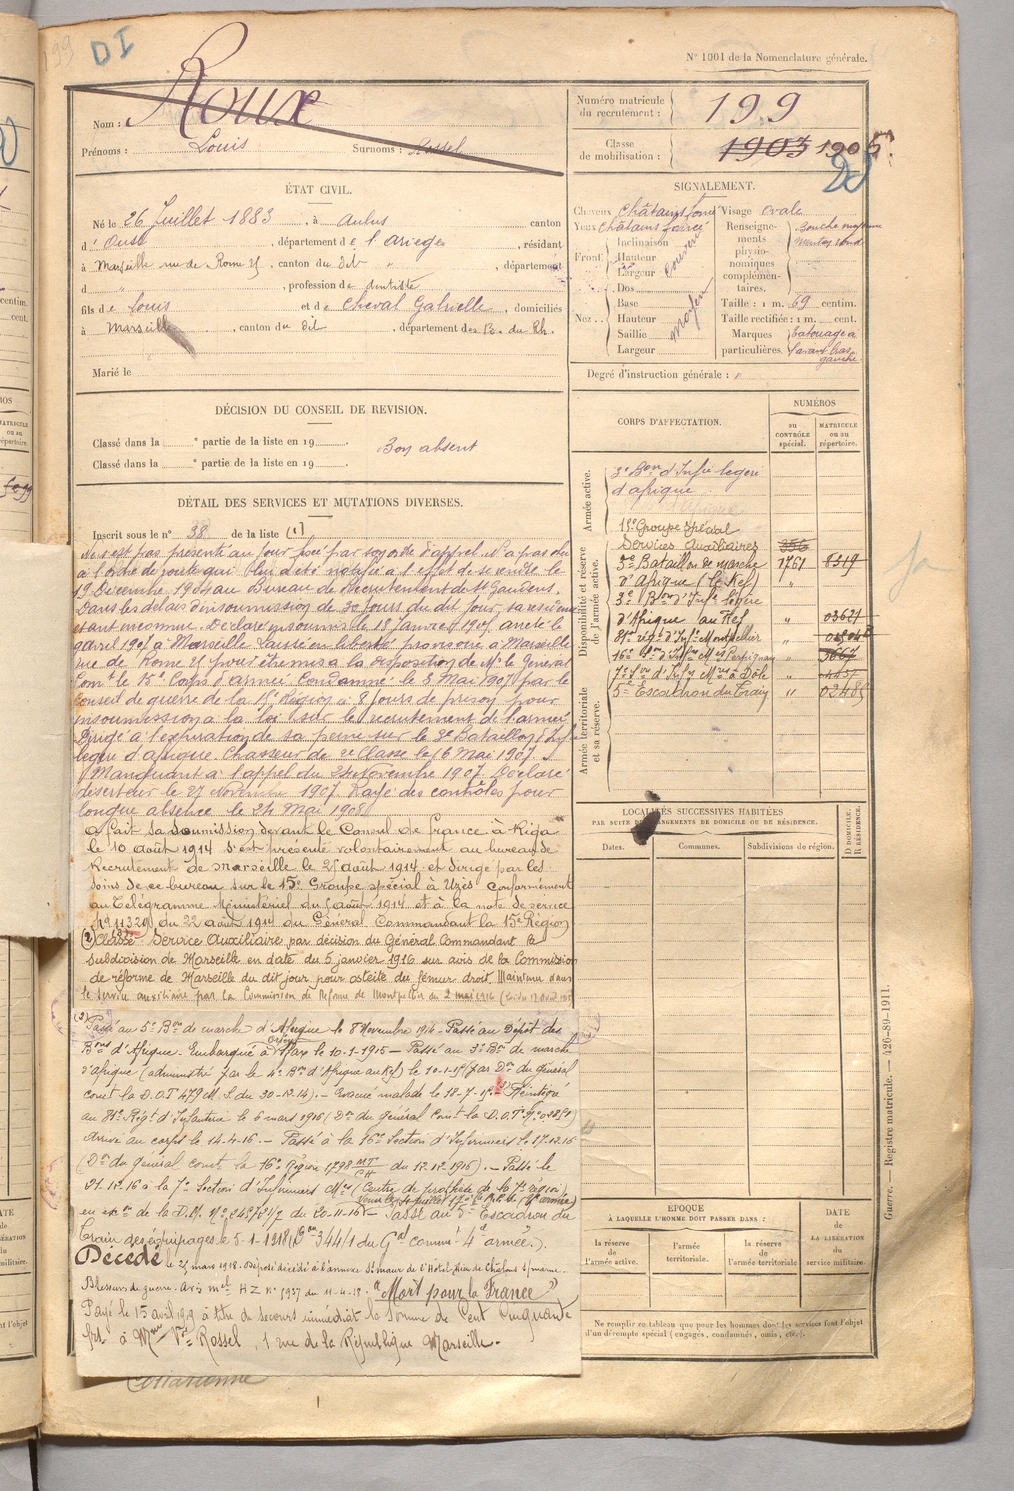 199
DI
N° 1001 de la Nomenclature générale.
Nom : Roux
Prénoms : Louis Surnoms : Rossel
Numéro matricule du recrutement : 199
Classe de mobilisation : 1903 1905
ÉTAT CIVIL.
Né le 26 Juillet 1883, à Aulus canton
d'Oust, département de l'Ariège, résidant
à Marseille rue de Rome 25, canton du dit ", département
d " , profession de dentiste
fils de Louis et de Cheval Gabrielle, domiciliés
à Marseille, canton du dit, département des B. du Rh.
Marié le
SIGNALEMENT.
Cheveux châtains foncé Visage ovale
Yeux châtains foncé
Front Inclinaison Hauteur Largeur couvert
Nez Dos Base Hauteur Saillie Largeur moyen
Renseignements physionomiques complémentaires. bouche moyenne menton rond
Taille : 1 m. 69 centim.
Taille rectifiée : 1 m. cent.
Marques particulières. Tatouage à l'avant bras gauche
Degré d'instruction générale : "
DÉCISION DU CONSEIL DE REVISION.
Classé dans la e partie de la liste en 19 . Bon absent
Classé dans la e partie de la liste en 19 .
DÉTAIL DES SERVICES ET MUTATIONS DIVERSES.
Inscrit sous le n° 38 de la liste (1)
Ne s'est pas présenté au jour fixé par son ordre d'appel. N'a pas obéi
à l'ordre de route qui lui a été notifié à l'effet de se rendre le
19 Décembre 1904 au Bureau de Recrutement de St Gaudens.
Dans les délais d'insoumission de 30 jours du dit jour, sa résidence
étant inconnue. Déclaré insoumis le 18 Janvier 1905. arrêté le
9 avril 1907 à Marseille. Laissé en liberté provisoire à Marseille
rue de Rome 25 pour être mis à la disposition de Mr le Général
Comt le 15e Corps d'armée. Condamné le 3 Mai 1907 par le
Conseil de guerre de la 15e Région à 8 jours de prison pour
insoumission à la loi sur le recrutement de l'armée.
Dirigé à l'expiration de sa peine sur le 3e Bataillon d'Inf
légère d'Afrique. Chasseur de 2e Classe le 16 Mai 1907.
Manquant à l'appel du 21 Novembre 1907. Déclaré
déserteur le 27 Novembre 1907. Rayé des contrôles pour
longue absence le 24 Mai 1908.
a fait sa soumission devant le Consul de France à Riga
le 10 août 1914 s'est présenté volontairement au bureau de
Recrutement de Marseille le 25 août 1914 et dirigé par les
soins de ce bureau sur le 15e Groupe spécial à Uzès conformément
au Télégramme Ministériel du 5 août 1914 et à la note de service
N° 11320 du 22 août 1914 du Général Commandant la 15e Région
(2) Classé Service Auxiliaire par décision du Général Commandant la
subdivision de Marseille en date du 5 janvier 1916 sur avis de la Commission
de réforme de Marseille du dit jour pour ostéite du fémur droit. Maintenu dans
le service auxiliaire par la Commission de Réforme de Montpellier du 2 mai 1916
(3) Passé au 5e Bon de marche d'Afrique le 8 Novembre 1914 - Passé au Dépôt des
Bons d'Afrique. Embarqué à Sfax le 10-1-1915 - Passé au 3e Bon de marche
d'Afrique (administré par le 4e Bon d'Afrique au Kef) le 10-1-15 (par Don du général
comt la D.O.T 479 M.S. du 30-12-14). - Evacué malade le 18-7-15. - Réintégré
au 81e Régt d'Infanterie le 6 mars 1916 (Don du général Comt la D.O.T. N°
Arrivé au corps le 14-4-16. - Passé à la 16e Section d'Infirmiers le 17.12.16
(Don du général comt la 16e Région 1798 du 12.12.1916). - Passé le
21-12-16 à la 7e Section d'Infirmiers Mres (Centre de prothèse de la 7e région)
en de la D.M. N° du 20-11-16 - Passé au 5e Escadron du
Train des équipages le 5-1-1918 (Don 344/1 du Gal commt 4e armée).
Décédé le 25 mars 1918. Déposé décédé à l'annexe St Maur de l'Hôtel-Dieu de Châlons s/marne.
Blessures de guerre. Avis mel HZ N° 5957 du 11-4-18. "Mort pour la France"
Payé le 15 avril 1919 à titre de secours immédiat la somme de Cent Cinquante
frs à Mme Vve Rossel, 1 rue de la République Marseille.
CORPS D'AFFECTATION.
NUMÉROS
au CONTRÔLE spécial.
MATRICULE ou au répertoire.
Armée active.
3e Bon d'Infie légère
d'Afrique
15e Groupe Spécial
Disponibilité et réserve de l'armée active.
Services Auxiliaires 356
5e Bataillon de marche 1761 8319
d'Afrique (Le Kef) "
3e Bon d'Infie légère
d'Afrique au Kef " 03621
81e régt d'Infie Montpellier "
16e Son d'Infers Mres Perpignan " 3667
7e Son d'Infrs Mres à Dôle "
5e Escadron du Train " 02485
Armée territoriale et sa réserve.
LOCALITÉS SUCCESSIVES HABITÉES
PAR SUITE DE CHANGEMENTS DE DOMICILE OU DE RÉSIDENCE.
Dates. Communes. Subdivisions de région. D DOMICILE. R RÉSIDENCE.
ÉPOQUE
À LAQUELLE L'HOMME DOIT PASSER DANS :
la réserve de l'armée active.
l'armée territoriale.
la réserve de l'armée territoriale
DATE de LA LIBÉRATION du service militaire.
Ne remplir ce tableau que pour les hommes dont les services font l'objet
d'un décompte spécial (engagés, condamnés, omis, etc.).
Guerre. — Registre matricule. — 426-89-1911.